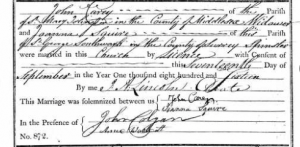 John Carey of this Parish
of St Mary Islington in the County of Middlesex Widower
and Joanna Squire of this Parish
of St George Southwark in the County of Surrey Spinster
were married in this Church by Licence with Consent of
this Seventeenth Day of
September in the Year One thousand eight hundred and
By me Lincoln Curate
This Marriage was solemnized between us John Carey
Joanna Squire
In the Presence of John
Anne
No. 872.